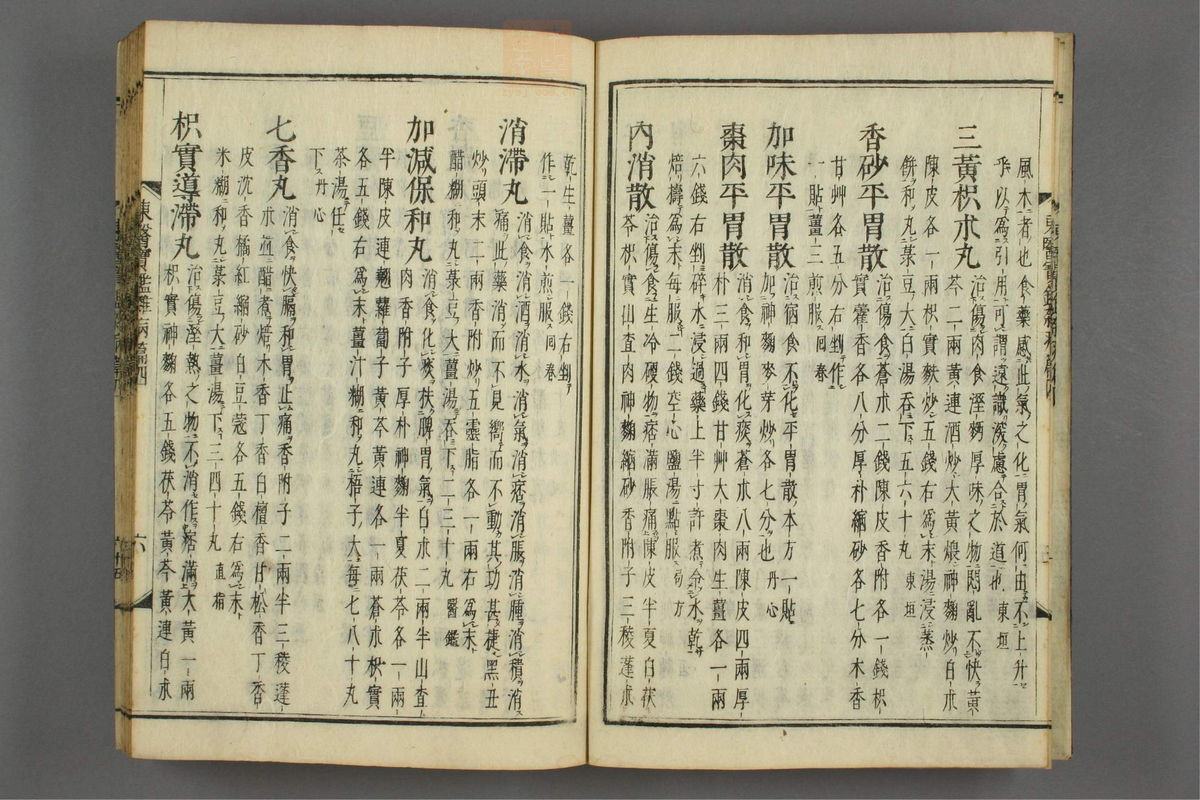 風木者也食藥感此氣之化胃氣何由不上升
乎以爲引用可謂遠識深慮合於道也東垣
三黃枳朮丸治傷肉食溼麪厚味之物悶亂不快黃
芩二兩黃連酒炒大黃煨神麴炒白朮
陳皮各一兩枳實麩炒五錢右爲末湯浸蒸
餅和丸菉豆大白湯吞下五六十丸東垣
香砂平胃散治傷食蒼朮二錢陳皮香附各一錢枳
實藿香各八分厚朴縮砂各七分木香
甘艸各五分右剉作
一貼薑三煎服回春
加味平胃散治宿食不化平胃散本方一貼
加神麴麥芽炒各七分也丹心
棗肉平胃散消食和胃化痰蒼朮八兩陳皮四兩厚
朴三兩四錢甘艸大棗肉生薑各一兩
六錢右剉碎水浸過藥上半寸許煮令水乾
焙擣爲末每服二錢空心鹽湯點服局方
內消散治傷食生冷硬物痞滿脹痛陳皮半夏白茯
苓枳實山査肉神麴縮砂香附子三稜蓬朮
乾生薑各一錢右剉
作一貼水煎服回春
消滯丸消食消酒消水消氣消痞消脹消腫消積消
痛此藥消而不見響而不動其功甚捷黑丑
炒頭末二兩香附炒五靈脂各一兩右爲末
醋糊和丸菉豆大薑湯吞下二三十丸醫鑑
加減保和丸消食化痰扶脾胃氣白朮二兩半山査
肉香附子厚朴神麴半夏茯苓各一兩
半陳皮連翹蘿蔔子黃芩黃連各一兩蒼朮枳實
各五錢右爲末薑汁糊和丸梧子大每七八十丸
茶湯任
下丹心
七香丸消食快膈和胃止痛香附子二兩半三稜蓬
朮並醋煮焙木香丁香白檀香甘松香丁香
皮沈香橘紅縮砂白豆蔲各五錢右爲末
米糊和丸菉豆大薑湯下三四十丸直指
枳實導滯丸治傷溼熱之物不消作痞滿大黃一兩
枳實神麴各五錢茯苓黃芩黃連白朮
東醫寶鑑雜病篇四
六